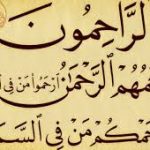 الرَّاحِمُونَ
مُهُمُ الرَّحْمَنُ ارْحَمُوا مَنْ فِي
حَمْكُمْ مَنْ فِي السَّمَ